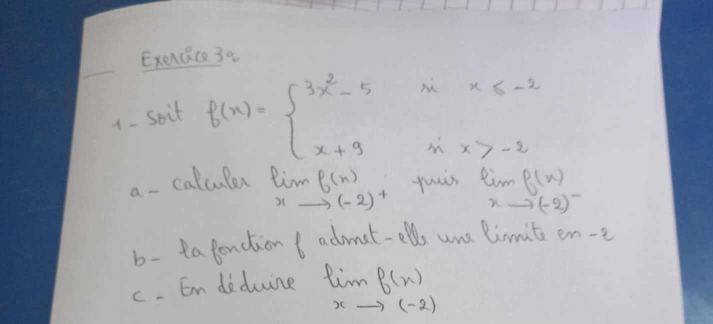 Exercice 3:
1- Soit f(x) = { 3x² - 5 si x ≤ -2
x + 9 si x > -2
a - calculer lim f(x) puis lim f(x)
x → (-2)⁺ x → (-2)⁻
b - la fonction f admet-elle une limite en -2
c - En déduire lim f(x)
x → (-2)